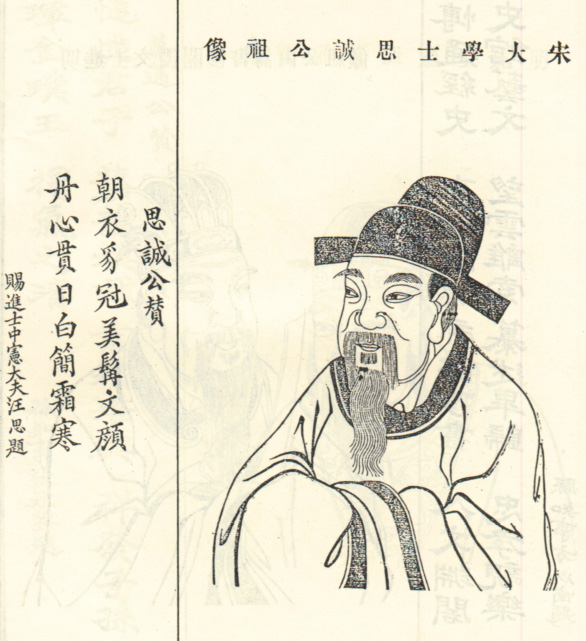 宋大學士思誠公祖像
思誠公賛
朝衣豸冠美髯文顏
丹心貫日白簡霜寒
賜進士中憲大夫汪思題